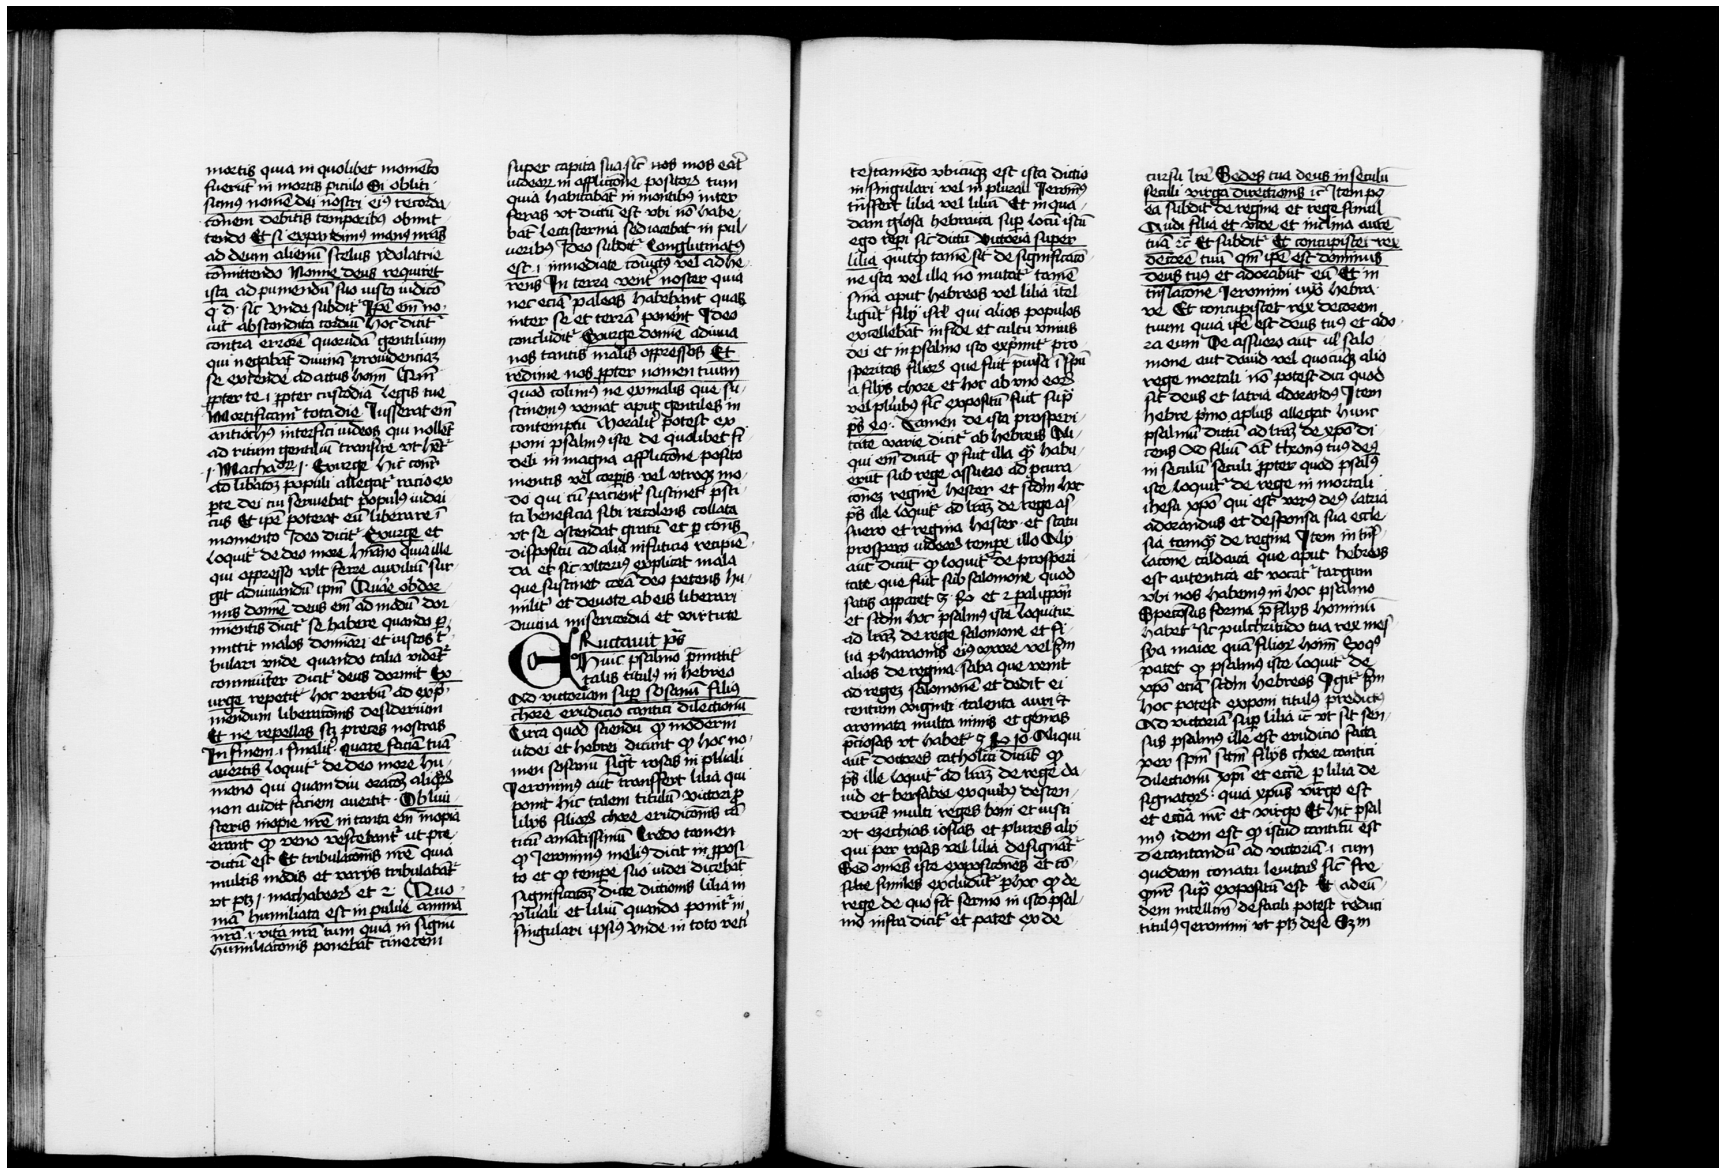 mortis quia in quolibet momēto
fuerūt in mortis p̄iculo Si obliti
sumus nomē dei nostri eiꝯ recorda
cōnem debitis temporibus obmit
tendo Et si expandimus manus nr̄as
ad deum alienū scelus ydolatrie
cōmittendo Nonne deus requiret
ista ad puniendū suo iusto iudicō
q̄ d. sic Vnde subdit᷑ Ip̄e em̄ no
uit abscondita cordiū hoc dicit᷑
contra errorē quorūdā gentilium
qui negabāt diuinā prouidenciā
se extendē ad actus hoīm Qm̄
ꝓpter te .i. ꝓpter custodiā legis tue
Mortificam᷑ tota die Iusserat em̄
antiochꝯ interfici iudeos qui nollēt
ad ritum gentiliū transire vt het᷑
.i. Machaꝝ .i. Exurge hic
ad libacōꝫ populi allegat᷑ racio ex
ꝑte dei cui seruebat populus iudei
cus Et ip̄e poterat eū liberare ī
momento Ideo dicit᷑ Exurge et
loquit᷑ de deo more hūano quia ille
qui oppresso vult ferre auxiliū sur
git ad iuuandū ip̄m Quare obdor
mis domīe deus em̄ ad modū dor
mientis dicit᷑ se habere quando ꝑ
mittit malos domīari et iustos t͛
bulari vnde quando talia vident᷑
conmuniter dicit᷑ deus dormit Ex
urge repetit᷑ hoc verbū ad exp̄
mendum liberacōnis desiderium
Et ne repellas scꝫ preces nostras
In finem .i. finalit᷑ Quare faciē tuā
auertis loquit᷑ de deo more hu
mano qui quamdiu oracōꝫ alicꝯ
non audit faciem auertit Obliui
sceris inopie nr̄e in tanta em̄ inopia
erant ꝙ veno vescebant᷑ ut pre
dictū est Et tribulacōnis nr̄e quia
multis modis et varijs tribulabāt᷑
vt ptꝫ .i. machabeoꝝ et 2. Quo
niā humiliata est in puluē anima
nr̄a .i. vita nr̄a tum quia in signū
humiliacōnis ponebāt cinerem
super capita sua sic᷑ nos mos
iudeoꝝ in afflictōne positoꝝ tum
quia habitabāt in montibus inter
feras vt dictū est vbi nō habe
bāt lectisternia sed iacebāt in pul
ueribus Ideo subdit᷑ Conglutinatꝯ
est .i. inmediate cōiūctꝯ vel adhe
rens In terra vent᷑ noster quia
nec eciā paleas habebant quas
inter se et terrā ponerēt Ideo
concludit᷑ Exurge domīe adiuua
nos tantis malis oppressos Et
redime nos ꝓpter nomen tuum
quod colimus ne ex malis que su
stinemꝯ veniat aput gentiles in
contemptū Moralit᷑ potest ex
poni psalmus iste de quolibet fi
deli in magna afflictōne posito
mentis vel corpis vel vtroqꝫ mo
do qui cū pacient᷑ sustinet p̄sti
ta beneficia sibi recolens collata
vt se ostendat gratū et ꝑ cōn̄s
dispositū ad alia in futuro recipiē
da et sic vlterius explicat mala
que sustinet corā deo petens hu
milit᷑ et deuote ab eis liberari
diuina misericordia et virtute
Eructauit p̄s
Huic psalmo p̄mittit᷑
talis titulꝯ in hebreo
Ad victoriam sup̄ sosanim filijs
chore erudicio cantici dilectionū
Circa quod sciendū ꝙ moderni
iudei et hebrei dicunt ꝙ hoc no
men sosanim sig᷑t rosas in plurali
Ieronimus aut̄ transffert lilia qui
ponit hic talem titulum victori ꝓ
lilijs filioꝝ chore erudicionis cā
ticū amātissimū Credo tamen
ꝙ Ieronimꝯ melius dicit in ꝓposi
to et ꝙ tempe suo iudei dicebāt
significacōꝫ dicte dictionis lilia in
plurali et liliū quando ponit᷑ in
singulari ipsius Vnde in toto veti
testamēto vbicūqꝫ est ista dictio
in singulari vel in plurali Ieronimꝯ
trāsfert lilia vel liliū Et in qua
dam glosa hebraica sup̄ locū istū
ego repi sic dictū Victoria super
lilia quicqͥd tamē sit de significacō
ne ista vel illa nō mutat᷑ tamē
sn̄ia aput hebreos vel lilia itel
ligūt᷑ filij isrl̄ qui alios populos
excellebāt in fide et cultu vnius
dei et in psalmo isto exp̄mit᷑ pro
speritas filioꝝ que fuit p̄uisa ī spū
a filijs chore et hoc ab vno eoꝝ
vel pluribus sic᷑ expositū fuit sup̄
p̄s Tamen de ista prosperi
tate varie dicit᷑ ab hebreis Ali
qui em̄ dicūt ꝙ fuit illa qͣ habu
erūt sub rege assuero ad ꝓcura
cōnꝫ regine hester et scdm̄ hoc
p̄s ille loquit᷑ ad lr̄aꝫ de rege as
suero et regina hester et statu
prospero iudeoꝝ tempe illo Alij
aut̄ dicūt ꝙ loquit᷑ de prosperi
tate que fuit sub salomone quod
satis apparet Re et 2 palippon̄
et scdm̄ hoc psalmus iste loquitur
ad lr̄aꝫ de rege salomone et fi
lia pharaonis eiꝯ vxore vel scdm̄
alios de regina saba que venit
ad regeꝫ salomonē et dedit ei
centum viginti talenta auri et
aromata multa nimis et gēmas
p̄ciosas vt habet᷑ Re 10 Aliqui
aut̄ doctores catholici dicūt ꝙ
p̄s ille loquit᷑ ad lr̄aꝫ de rege da
uid et bersabee ex quibus descen
derūt multi reges boni et iusti
vt ezechias iosias et plures alij
qui per rosas vel lilia designāt᷑
Sed om̄es iste expositōnes et cō
similes excludūt᷑ ꝑ hoc ꝙ de
rege de quo fit sermo in isto psal
mo infra dicit᷑ et patet ex de
cursu lr̄e Sedes tua deus in seculū
seculi virga directionis ꝛc Item po
ea subdit de regina et rege simul
Audi filia et vide et inclina aurē
tuā ꝛc Et subdit᷑ Et concupiscet rex
decorē tuū qm̄ ip̄e est dominus
deus tuꝯ et adorabūt eū Et in
trāslacōne Ieronimi iuxͣ hebra
yē Et concupiscet rex decorem
tuum quia ip̄e est deus tuꝯ et ado
ra eum De assuero aut̄ ul̄ salo
mone aut dauid vel quocūqꝫ alio
rege mortali nō potest dici quod
sit deus et latria adorandꝯ Item
hebre p̄mo aplus allegat hunc
psalmū dictū ad lr̄aꝫ de xp̄o di
cens Ad filiū aūt thronꝯ tuꝯ deꝯ
in seculū seculi ꝓpter quod psalꝯ
iste loquit᷑ de rege in mortali
ihesu xp̄o qui est verꝯ deꝯ latria
adorandus et desponsa sua eccle
sia tamqͣ de regina Item in trās
lacōne caldaica que aput hebreos
est autentica et vocat᷑ targum
vbi nos habemꝯ in hoc psalmo
Speciosus forma p̄ filijs hominū
habet᷑ sic pulchritudo tua rex mes
sya maior quā filioꝝ hoīm Ex qͦ
patet ꝙ psalmus iste loquit᷑ de
xp̄o eciā scdm̄ hebreos Igit᷑ scdm̄
hoc potest exponi titulus predictus
Ad victoriā sup̄ lilia ꝛc vt sit sen
sus psalmus ille est erudicio facta
per spm̄ scm̄ filijs chore cantici
dilectionū xp̄i et ecc̄ie ꝑ lilia de
signatoꝝ quia xp̄us virgo est
et ecc̄ia mr̄ et virgo Et hic psal
mꝯ idem est ꝙ istud canticū est
decantandū ad victoriā .i. cum
quodam conatu leuitaꝝ sic᷑ fre
qn̄t᷑ sup̄ expositū est Et ad eū
dem intellm̄ de facili potest reduci
titulꝯ Ieronimi vt pꝫ de se Scdm̄